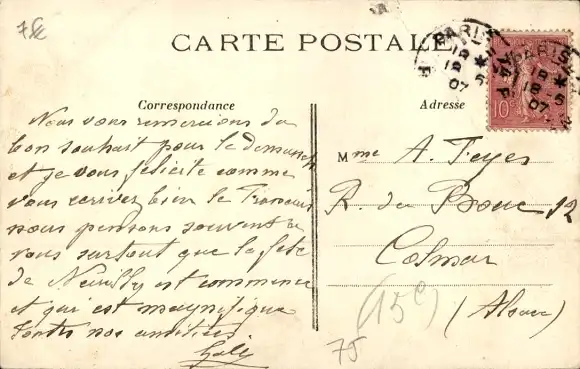 75c
CARTE POSTALE
PARIS
18
18 - 5
07
PARIS
18
18 - 5
07
10c
Correspondance
Adresse
Nous vous remercions du
bon souhait pour le
et je vous félicite comme
vous écrivez bien le Francais
nous pensons souvent a
vous surtout que la fete
de Neuilly est commencee
et qui est magnifique
toutes nos amitiés
Mme A.
R. du 12
Colmar
(Alsace)
(15c)
75